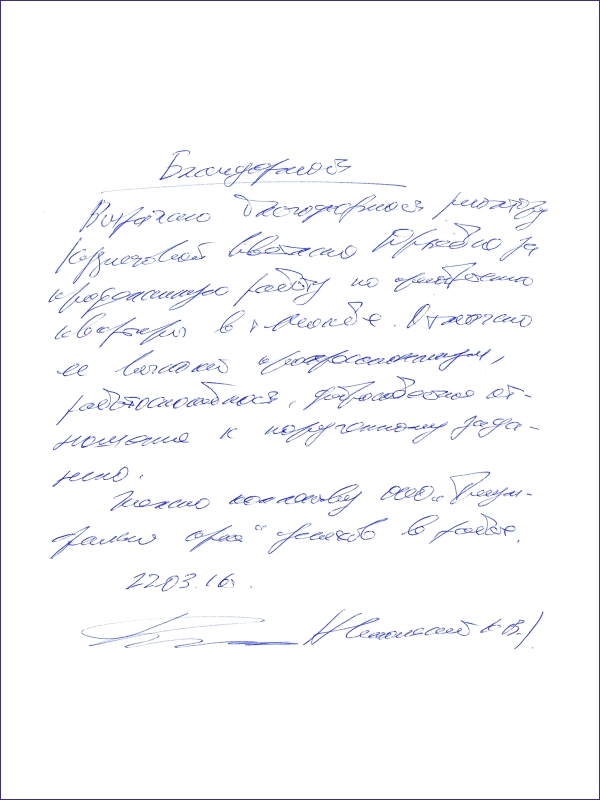 Благодарность
Выражаю благодарность риэлтору
Кузнецовой Светлане Юрьевне за
проделанную работу по приобретению
квартиры в г. Москве. Отмечаю
ее высокий профессионализм,
работоспособность, добросовестное от-
ношение к порученному зада-
нию.
Желаю коллективу ООО „
" успехов в работе.
22.03.16г.
К.В./